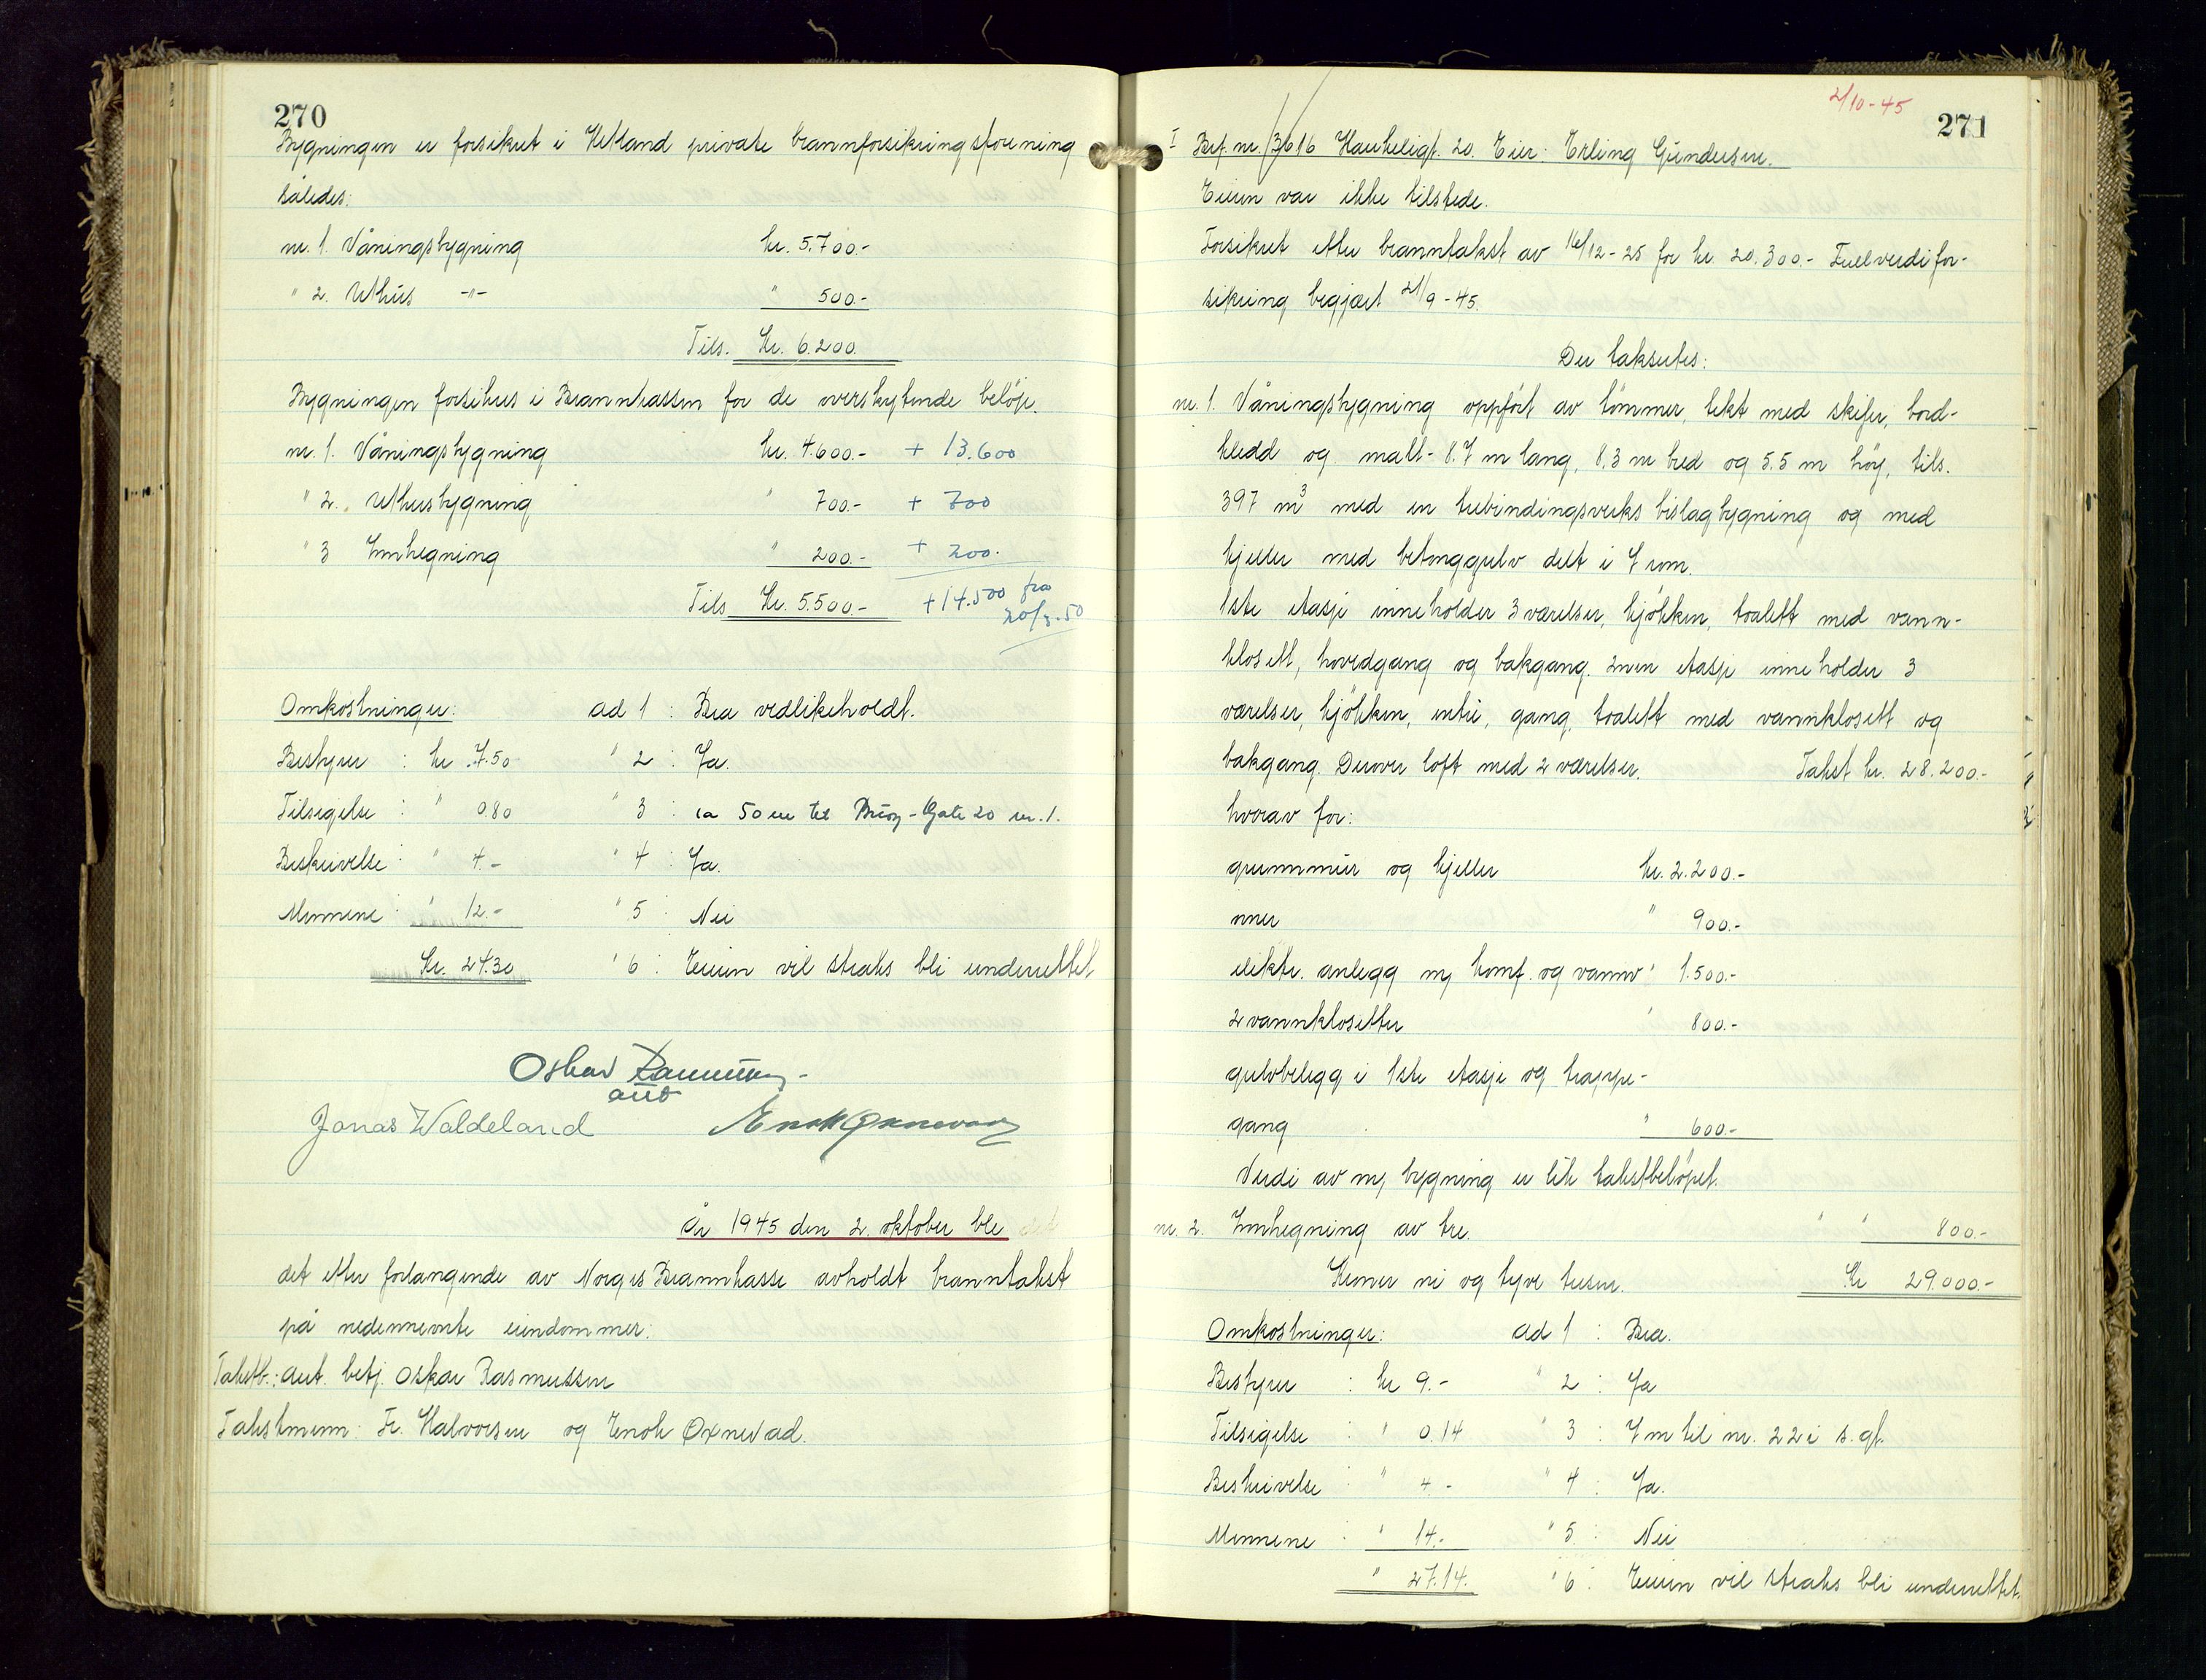 270
Bygningen er forsikret i Hetland private brannforsikringsforening
således:
nr. 1. Våningsbygning kr. 5.700.-
" 2. Uthus -"- " 500.-
Tils. Kr. 6.200.
Bygningen forsikres i Brannkassen for de overskytende beløp.
nr. 1. Våningsbygning kr. 4.600.- + 13.600
" 2. Uthusbygning " 700.- + 700
" 3 Innhegning " 200.- + 200.
Tils Kr. 5.500.- + 14.500 fra
20/3.50
Omkostninger: ad 1 : Bra vedlikeholdt.
Bestyrer : kr. 7.50 " 2 : Ja.
Tilsigelse : " 0.80 " 3 : ca 50 m til Gate 20 nr. 1.
Beskrivelse : " 4.- " 4 : Ja.
Mennene : " 12.- " 5 : Nei
Kr. 24.30 " 6 : Eieren vil straks bli underrettet
Oskar Rasmussen
aut
Jonas Waldeland Enok Oxnevad
År 1945 den 2. oktober ble
det etter forlangende av Norges Brannkasse avholdt branntakst
på nedennevnte eiendommer:
Takstb.: aut. betj. Oskar Rasmussen
Takstmenn: Fr. Halvorsen og Enok Oxnevad.
2/10-45
271
I Brf. nr. 3616 Haukeligt. 20. Eier: Erling Gundersen.
Eieren var ikke tilstede.
Forsikret etter branntakst av 16/12-25 for kr. 20.300.- Fullverdifor-
sikring begjært 21/9-45.
Der takseres:
nr. 1. Våningsbygning oppført av tømmer, tekt med skifer, bord-
kledd og malt - 8.7 m lang, 8,3 m bred og 5.5 m høy, tils.
397 m3 med en trebindingsverks bislagbygning og med
kjeller med betonggulv delt i 7 rom.
1ste etasje inneholder 3 værelser, kjøkken, toalett med vann-
klosett, hovedgang og bakgang. 2nen etasje inneholder 3
værelser, kjøkken, entré, gang, toalett med vannklosett og
bakgang. Derover loft med 2 værelser. Takst kr. 28.200.-
hvorav for:
grunnmur og kjeller kr. 2.200.-
ovner " 900.-
elektr. anlegg m/ komf. og vannv " 1.500.-
2 vannklosetter " 800.-
gulvbelegg i 1ste etasje og trappe-
gang " 600.-
Verdi av ny bygning er lik takstbeløpet.
nr. 2. Innhegning av tre. " " 800.-
Kroner ni og tyve tusen. Kr 29.000.-
Omkostninger: ad 1 : Bra.
Bestyrer : kr 9.- " 2 : Ja
Tilsigelse : " 0.14 " 3 : 7 m til nr. 22 i s. gt.
Beskrivelse : " 4.- " 4 : Ja.
Mennene : " 14.- " 5 : Nei
" 27.14. " 6 : Eieren vil straks bli underrettet.